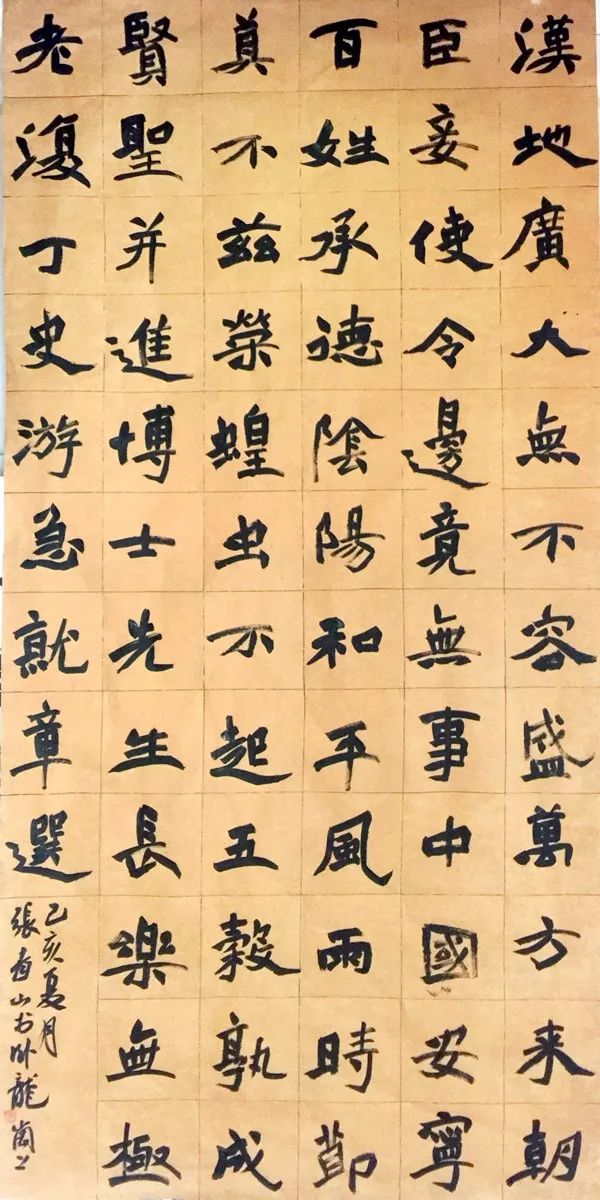 漢地廣大無不容盛萬方来朝
臣妾使令邊竟無事中國安寧
百姓承德陰陽和平風雨時節
莫不兹榮蝗虫不起五穀孰成
賢聖并進博士先生長樂無極
老復丁史游急就章選
己亥夏月
張山书卧龍崗上